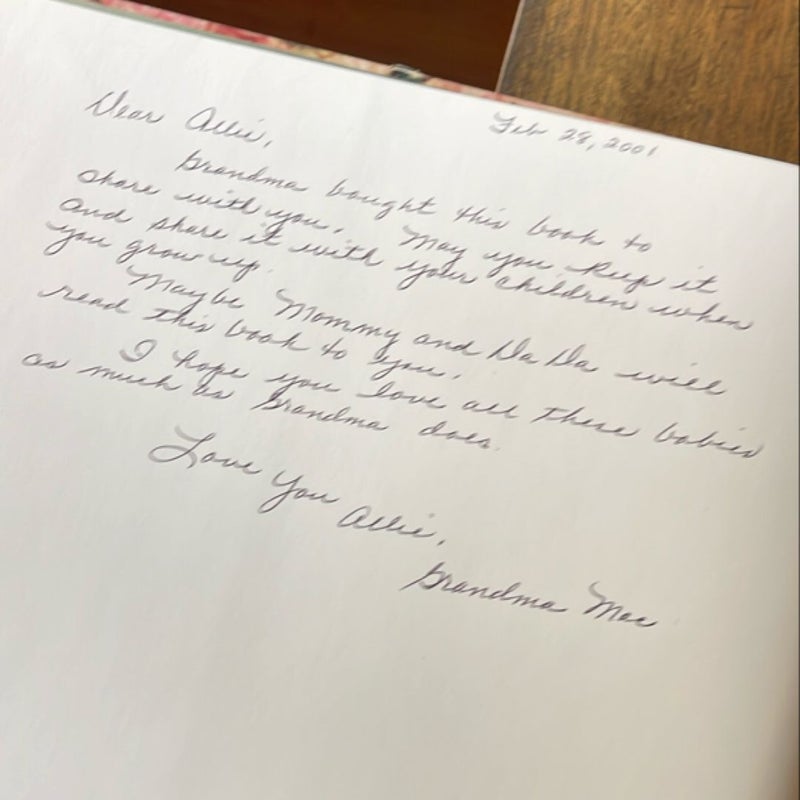 Feb 28, 2001
Dear Allie,
Grandma bought this book to
share with you. May you keep it
and share it with your children when
you grow up.
Maybe Mommy and Da Da will
read this book to you.
I hope you love all these babies
as much as Grandma does.
Love You Allie,
Grandma Mae